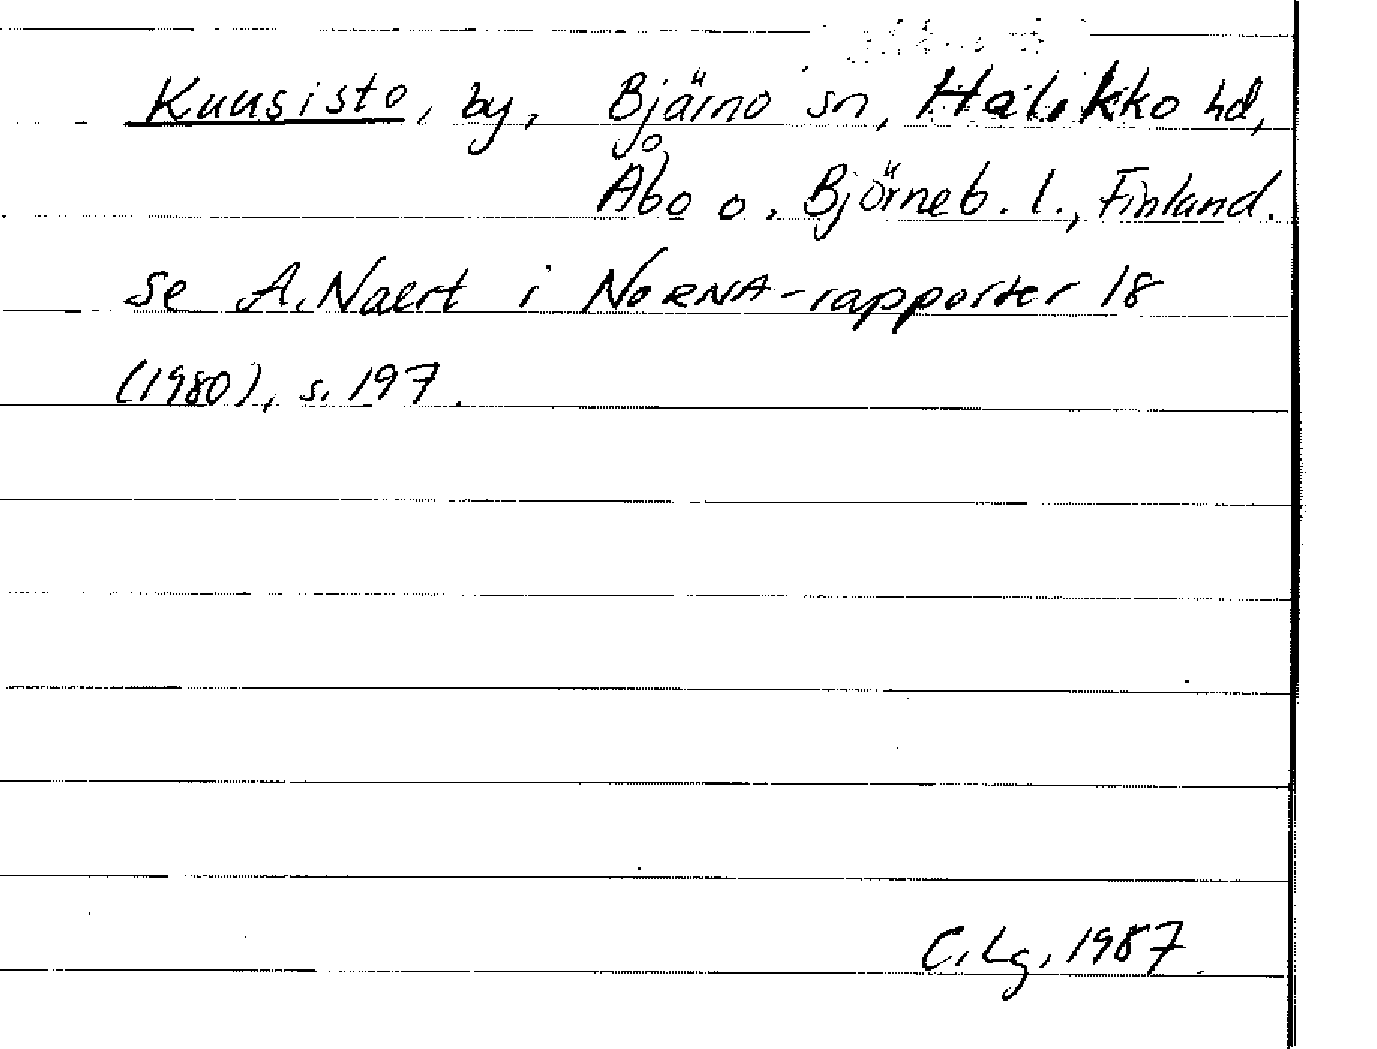 Kuusisto, by, Bjärno sn, Halikko hd,
Åbo o. Björneb. l., Finland.
se A. Naert i NORNA-rapporter 18
(1980), s. 197.
C. Lg, 1987.